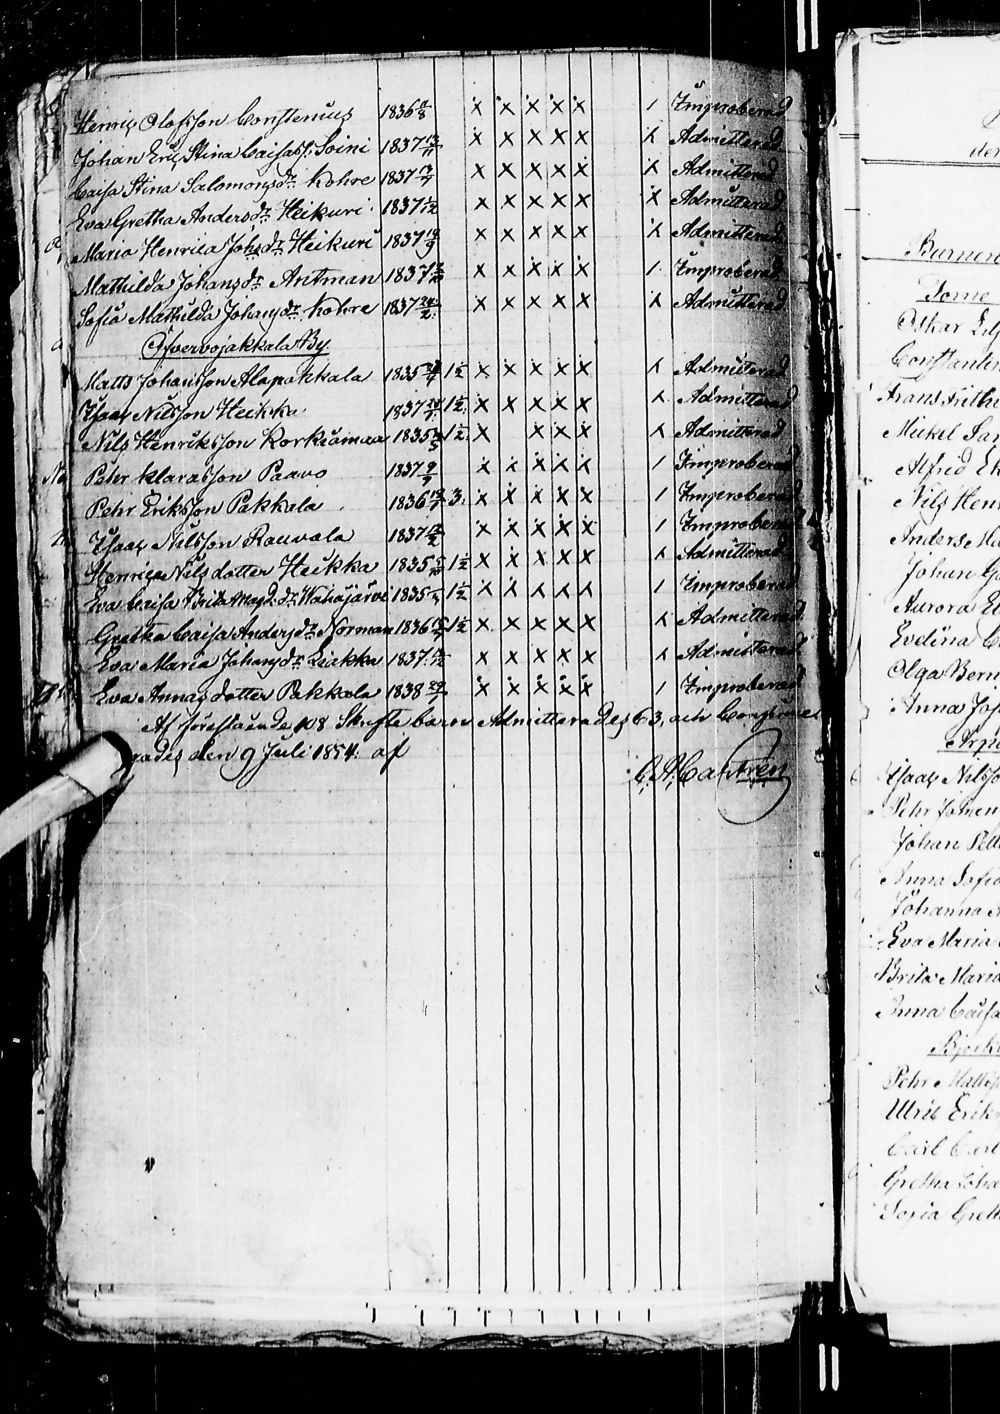 Henric Olofsson Constenius 1836 11/8 x x x x x 1 Improberad
Johan Eric Stina Caisass. Soini 1837 x x x x x x Admitterad
Caisa Stina Salomonsdr. Kohre 1837 x x x x x x Admitterad
Eva Gretha Andersdr. Heikuri 1837 x x x x x x Admitterad
Maria Henrica Johsdr. Heikuri 1837 19/9 x x x x x x Admitterad
Mathilda Johansdr. Antman 1837 x x x x x 1 Improberad
Sofia Mathilda Johansdr. Kohre 1837 24/2 x x x x x x Admitterad
Öfvervojakkala By
Matts Johansson Alapakkala 1835 1 1/2 x x x x x x Admitterad
Isaac Nilsson Heikka 1837 1 1/2 x x x x x x Admitterad
Nils Henriksson Korkiamaa 1835 1 1/2 x x x x x Admitterad
Pehr Klarasson Paavo 1837 9/7 x x x x x 1 Improberad
Pehr Eriksson Pakkala 1836 3 x x x x x 1 Improberad
Isaac Nilsson Rauvala 1837 x x x x x 1 Improberad
Henrica Nilsdotter Heikka 1835 1 1/2 x x x x x x Admitterad
Eva Caisa Brita Magd. dr. Wähäjärvi 1835 1 1/2 x x x x x 1 Improberad
Gretha Caisa Andersdr. Norman 1836 1 1/2 x x x x x x Admitterad
Eva Maria Johansdr. Liakka 1837 x x x x x x Admitterad
Eva Annasdotter Pakkola 1838 x x x x x 1 Improberad
Af förestående 108 Skriftebarn Admitterades 63, och Confirme-
rades den 9 Juli 1854. af
C. A. Castrén
Barnen
Torne
Oskar
Constantin
Frans Frithi
Mickel
Alfred
Nils Henr
Anders Ma
Johan G
Aurora El
Evelina C
Olga Bern
Anna Jos
Arpe
Isaac Nilsso
Pehr Johan
Johan Pett
Anna Sofia
Johanna
Eva Maria
Brita Maria
Anna Caisa
Björk
Pehr Matts
Ulric Erik
Carl Carl
Gretha Joha
Sofia Greth